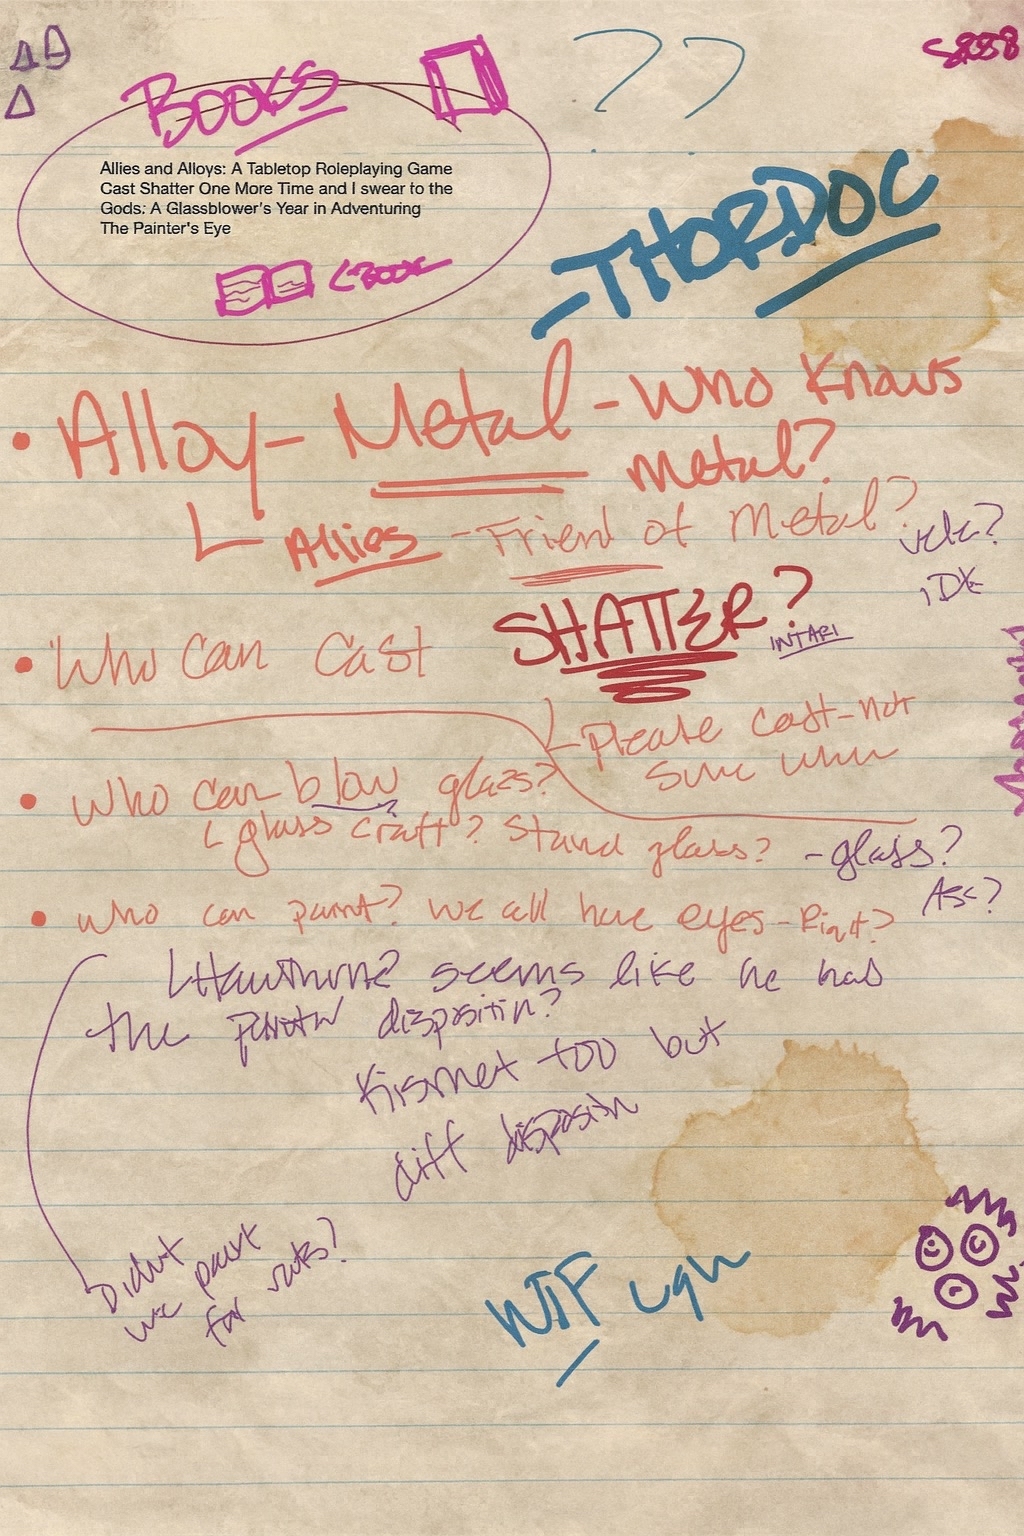 ??
BOOKS
Allies and Alloys: A Tabletop Roleplaying Game
Cast Shatter One More Time and I swear to the
Gods: A Glassblower's Year in Adventuring
The Painter's Eye
<BOOK
-THORDOC
• Alloy - Metal - Who Knows
Metal?
Allies - Friend of Metal?
IDK
• Who Can Cast SHATTER?
INTARI
Please cast - not
sure when
• Who can blow glass?
glass craft? Staind glass? - glass?
Ask?
• Who can paint? We all have eyes - Right?
Hawthorne? seems like he has
the painter disposition?
Kismet too but
diff disposition
Didnt
we paint
for rats?
WTF ugh